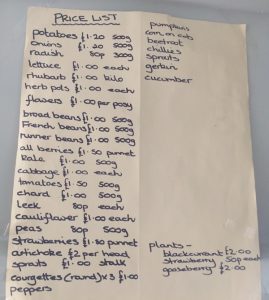 PRICE LIST
potatoes £1.20 500g
onions £1.20 500g
radish 80p 300g
lettuce £1.00 each
rhubarb £1.00 kilo
herb pots £1.00 each
flowers £1.00 per posy
broad beans £1.00 500g
French beans £1.00 500g
runner beans £1.00 500g
all berries £1.50 punnet
kale £1.00 500g
cabbage £1.00 each
tomatoes £1.50 500g
chard £1.00 500g
leek 80p each
cauliflower £1.00 each
peas 80p 500g
strawberries £1.80 punnet
artichoke £2 per head
sprouts £1.00 stalk
courgettes (round) x3 £1.00
peppers
pumpkins
corn on cobs
beetroot
chillies
sprouts
gerkin
cucumber
plants -
blackcurrant £2.00
strawberry 50p each
gooseberry £2.00